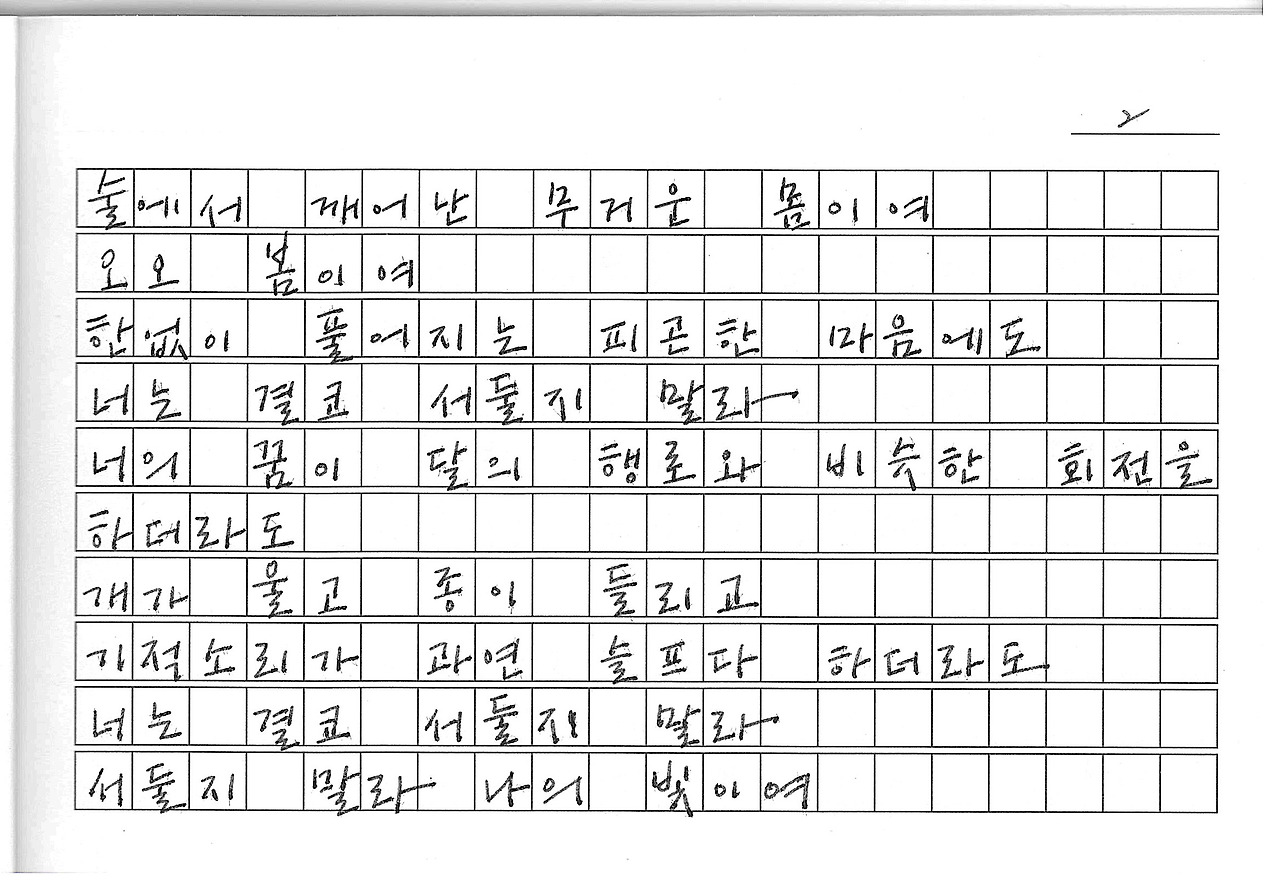 2
술에서 깨어난 무거운 몸이여
오오 봄이여
한없이 풀어지는 피곤한 마음에도
너는 결코 서둘지 말라
너의 꿈이 달의 행로와 비슷한 회전을
하더라도
개가 울고 종이 들리고
기적소리가 과연 슬프다 하더라도
너는 결코 서둘지 말라
서둘지 말라 나의 빛이여